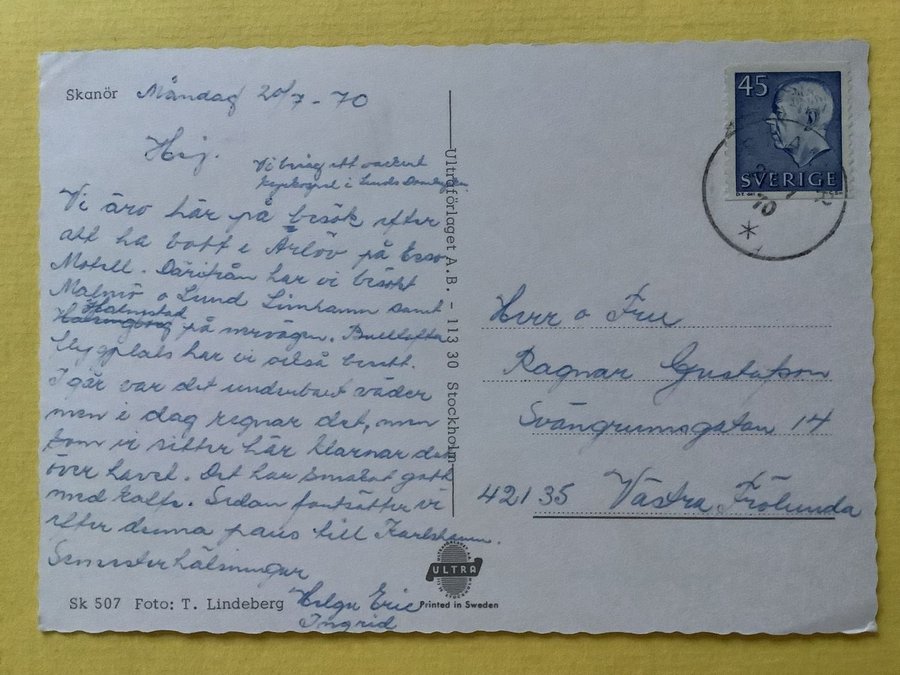 Skanör Måndag 20/7 - 70
Hej.
Vi åro här på besök efter
att ha bott i Arlöv på Esso
Motell. Därifrån har vi besökt
Malmö o Lund Limhamn samt
Halmstad
på Bulltofta
flygplats har vi också besett.
I går var det underbart väder
men i dag regnar det, men
som vi sitter här klarnar det
över havet. Det har smakat gott
med kaffe. Sedan fortsätter vi
efter denna paus till Karlshamn.
Semesterhälsningar
Helge Eric
Ingrid
Sk 507 Foto: T. Lindeberg
Ultraförlaget A.B. - 113 30 Stockholm
ULTRA
Printed in Sweden
45
SVERIGE
70
Herr o Fru
Ragnar Gustafson
Svängrumsgatan 14
421 35 Västra Frölunda